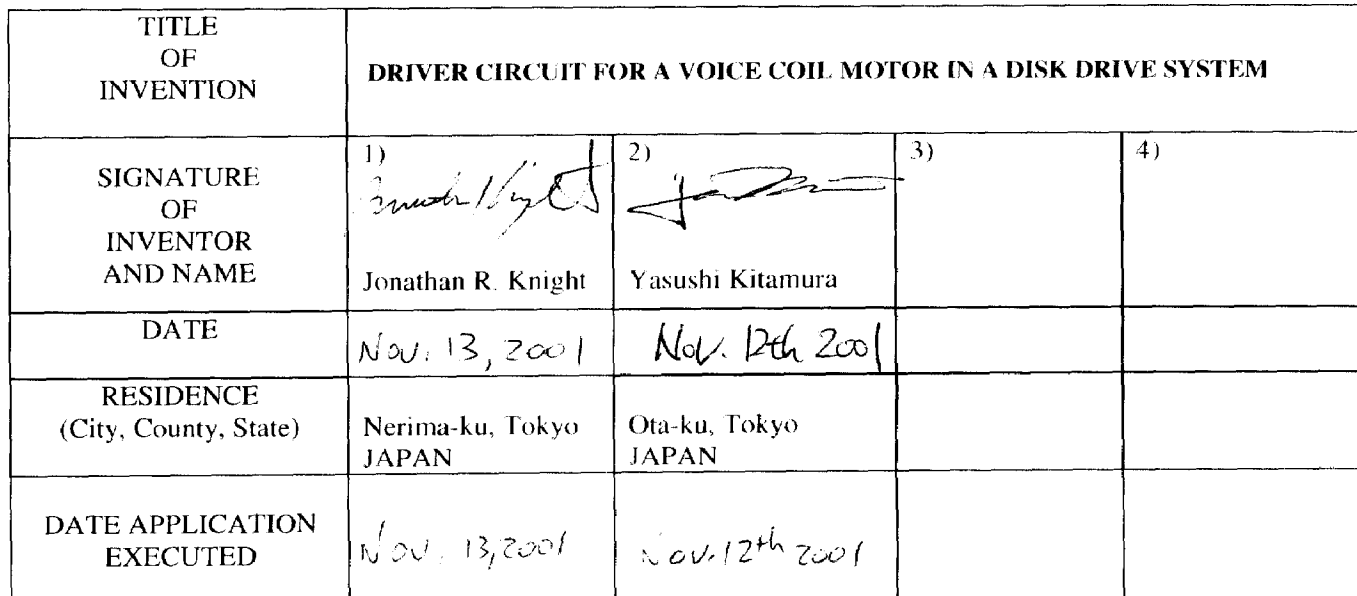 TITLE
OF
INVENTION
DRIVER CIRCUIT FOR A VOICE COIL MOTOR IN A DISK DRIVE SYSTEM
SIGNATURE
OF
INVENTOR
AND NAME
1)
Jonathan R. Knight
2)
Yasushi Kitamura
3)
4)
DATE
Nov. 13, 2001
Nov. 12th 2001
RESIDENCE
(City, County, State)
Nerima-ku, Tokyo
JAPAN
Ota-ku, Tokyo
JAPAN
DATE APPLICATION
EXECUTED
Nov. 13, 2001
Nov. 12th 2001